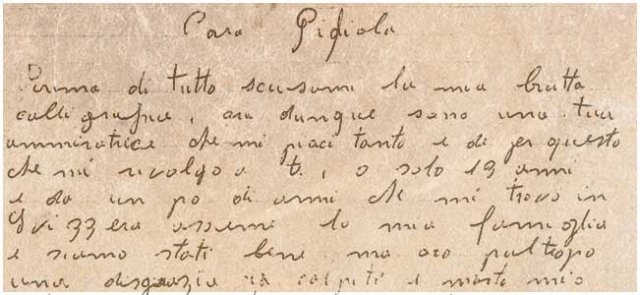 Cara Pidiola
Prima di tutto scusami la mia brutta
calligrafia, ora dunque sono una tua
ammiratrice che mi piaci tanto e di per questo
che mi rivolgo a t., o solo 19 anni
e da un po di anni che mi trovo in
33 era assiemi la mia famiglia
e siamo stati bene ma oro pultropo
una disgrazia ia colpiti e morto mio